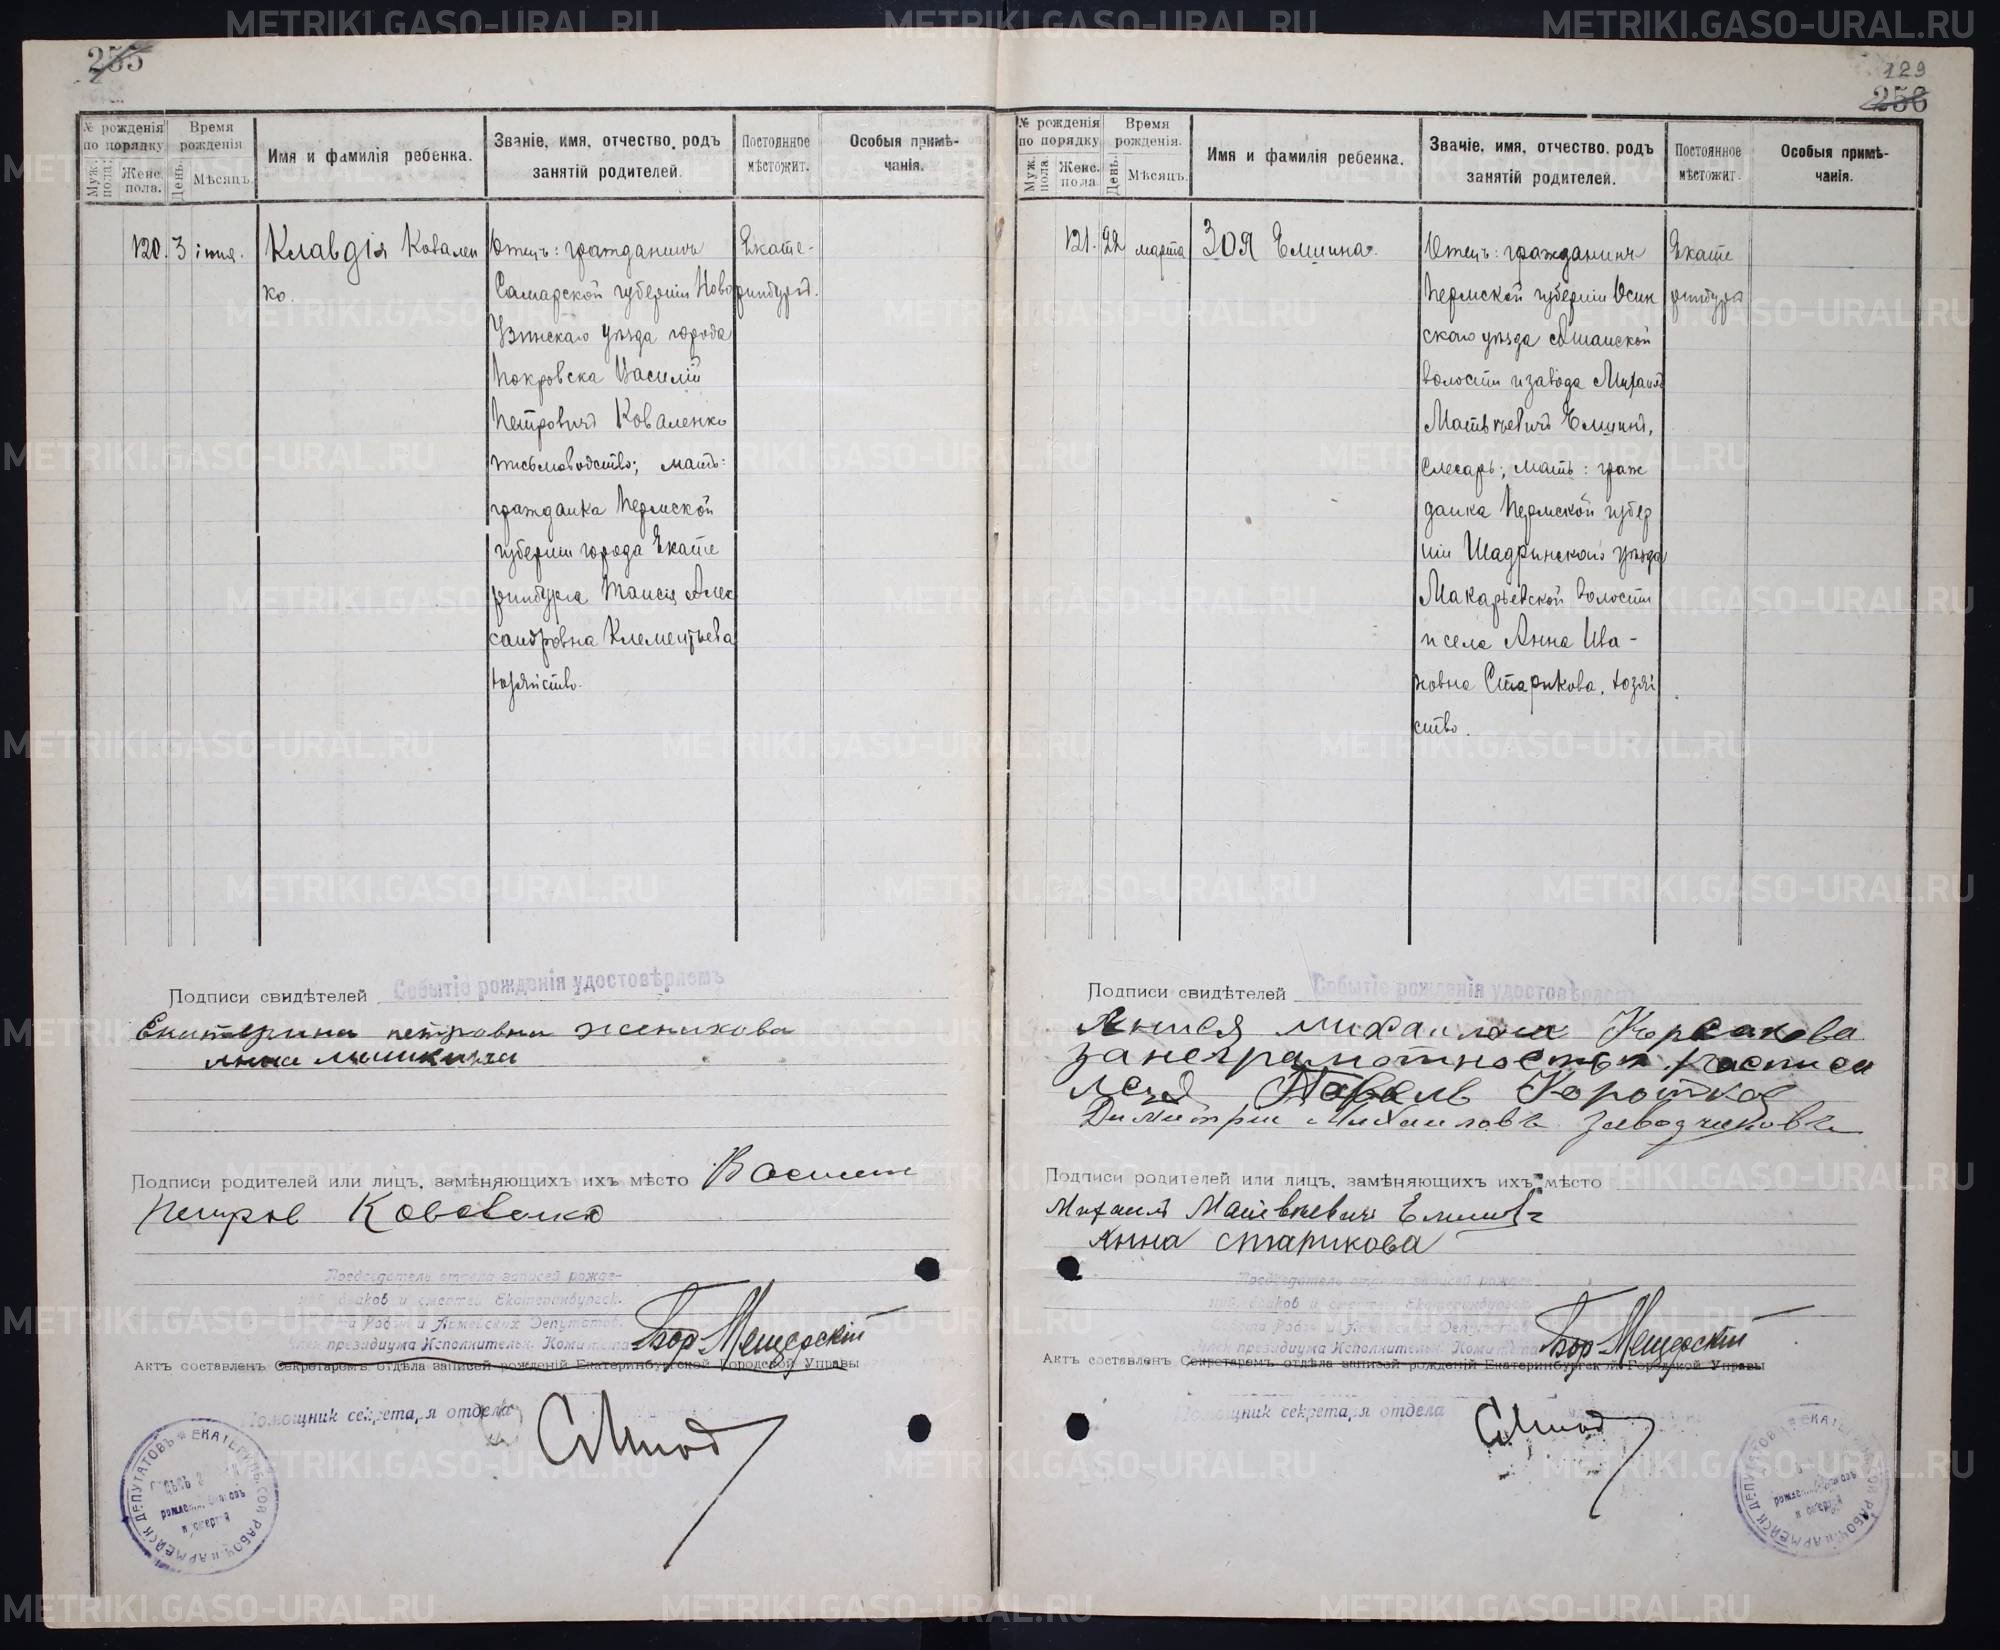 255
№ рожденія по порядку.
Муж. пола.
Женс. пола.
Время рожденія
День.
Мѣсяцъ.
Имя и фамилія ребенка.
Званіе, имя, отчество, родъ
занятій родителей.
Постоянное
мѣстожит.
Особыя примѣ-
чанія.
120. 3 іюня.
Клавдія Ковален
ко.
Отецъ: гражданинъ
Самарской губерніи Ново
Узенскаго уѣзда города
Покровска Василій
Петровичъ Коваленко
письмоводство; мать:
гражданка Пермской
губерніи города Екате
ринбурга Таисія Алек
сандровна Клементьева
хозяйство.
Екате-
ринбургъ.
Подписи свидѣтелей
Событіе рожденія удостовѣряемъ
Екатерина петровна
Анна
Подписи родителей или лицъ, замѣняющихъ ихъ мѣсто Василий
Петров Коваленко
Председатель отдела записей рожде-
ний, браков и смертей Екатеринбургск.
Раб. и Армейских Депутатов.
Член президиума Исполнительн. Комитета
Актъ составленъ Секретаремъ отдѣла записей рожденій Екатеринбургской Городской Управы
Помощник секретаря отдела
129
256
№ рожденія по порядку
Муж. пола.
Женс. пола
Время рожденія.
День.
Мѣсяцъ.
Имя и фамилія ребенка.
Званіе, имя, отчество, родъ
занятій родителей.
Постоянное
мѣстожит.
Особыя примѣ-
чанія.
121. 22 марта
Зоя Елшина.
Отецъ: гражданинъ
Пермской губерніи Осин
скаго уѣзда
волости и завода Михаилъ
Матвѣевичъ Елшинъ,
слесарь; мать: граж
данка Пермской губер
ніи Шадринскаго уѣзда
Макарьевской волости
и села Анна Ива-
новна Старикова, хозяй
ство.
Екате
ринбургъ
Подписи свидѣтелей
Событіе рожденія удостовѣряемъ
Анися михаиловна Корсакова
за неграмотностью росписа
лся Павелъ Коротков
Димитріи Михаиловъ Заводчиковъ
Подписи родителей или лицъ, замѣняющихъ ихъ мѣсто
Михаил Матвѣевичъ Елшинъ
Анна Старикова
Председатель отдела записей рожде-
ний, браков и смертей Екатеринбургск.
Совета Рабоч. и Армейских Депутатов
Член президиума Исполнительн. Комитета
Актъ составленъ Секретаремъ отдѣла записей рожденій Екатеринбургской Городской Управы
Помощник секретаря отдела
METRIKI.GASO-URAL.RU